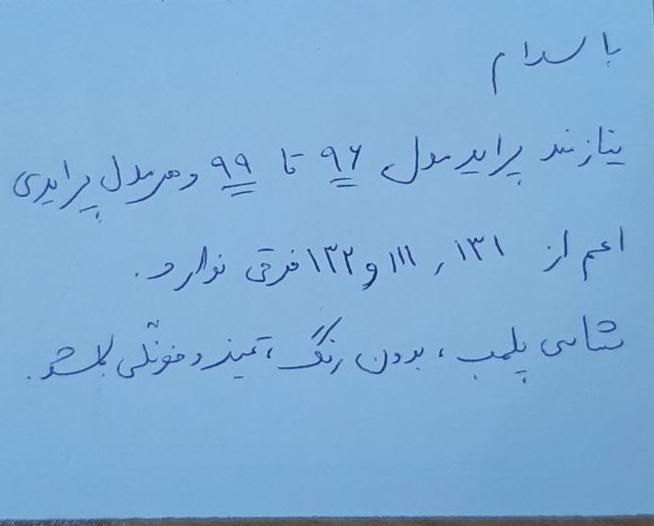 با سلام
نیازمند پراید مدل ۹۶ تا ۹۹ و هر مدل پرایدی
اعم از ۱۳۱, ۱۱۱ و ۱۳۲ فرقی ندارد.
شاسی پلمپ، بدون رنگ، تمیز و خونگی باشد.